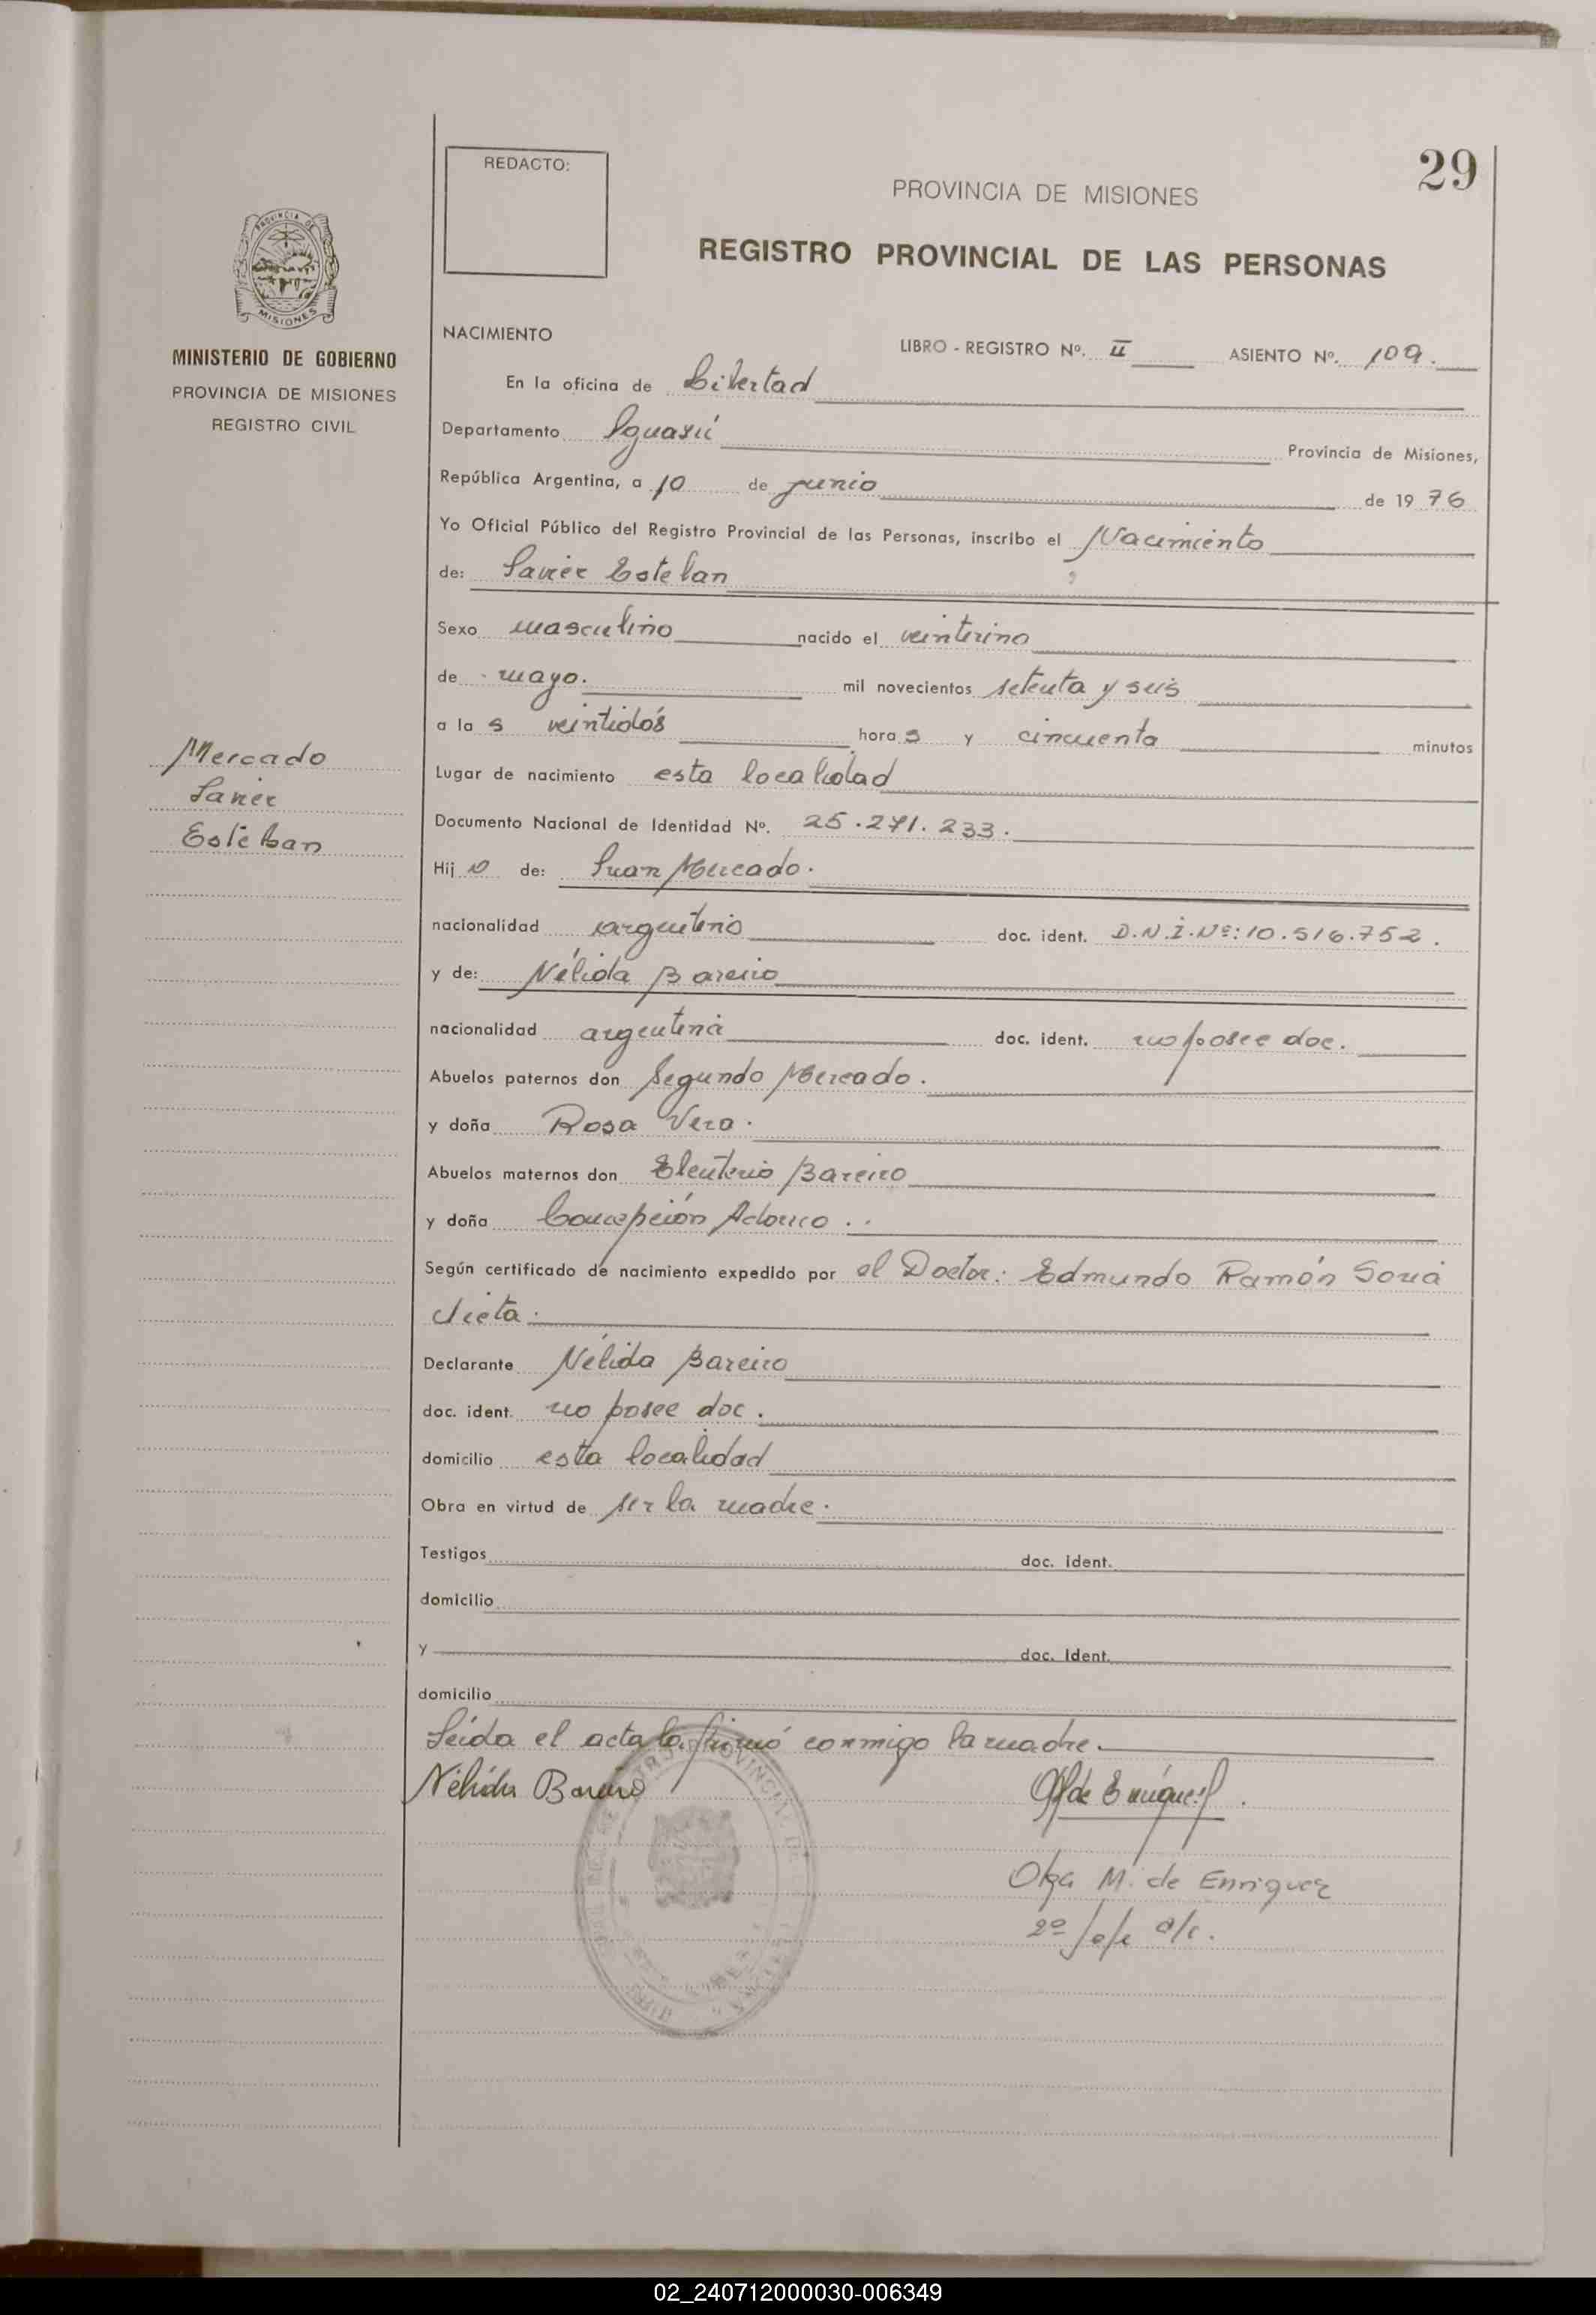 29
REDACTO:
PROVINCIA DE MISIONES
REGISTRO PROVINCIAL DE LAS PERSONAS
PROVINCIA DE
MISIONES
MINISTERIO DE GOBIERNO
PROVINCIA DE MISIONES
REGISTRO CIVIL
NACIMIENTO
LIBRO - REGISTRO Nº. II ASIENTO Nº. 109.
En la oficina de Libertad
Departamento Iguazú Provincia de Misiones,
República Argentina, a 10 de junio de 1976
Yo Oficial Público del Registro Provincial de las Personas, inscribo el Nacimiento
de: Javier Esteban
Sexo masculino nacido el
de mayo. mil novecientos setenta y seis
a la s veintidós hora s y cincuenta minutos
Mercado
Javier
Esteban
Lugar de nacimiento esta localidad
Documento Nacional de Identidad Nº. 25.271.233.
Hij o de: Juan Mercado.
nacionalidad argentino doc. ident. D.N.I.Nº:10.516.752.
y de: Nélida Bareiro
nacionalidad argentina doc. ident. no posee doc.
Abuelos paternos don Segundo Mercado.
y doña Rosa Vera.
Abuelos maternos don Eleuterio Bareiro
y doña Concepción
Según certificado de nacimiento expedido por el Doctor: Edmundo Ramón
Declarante Nélida Bareiro
doc. ident. no posee doc.
domicilio esta localidad
Obra en virtud de ser la madre.
Testigos doc. ident.
domicilio
y doc. ident.
domicilio
Leída el acta la firmó conmigo la madre.
Nélida Bareiro
Olga M. de Enriquez
2º Jefe a/c.
02_240712000030-006349